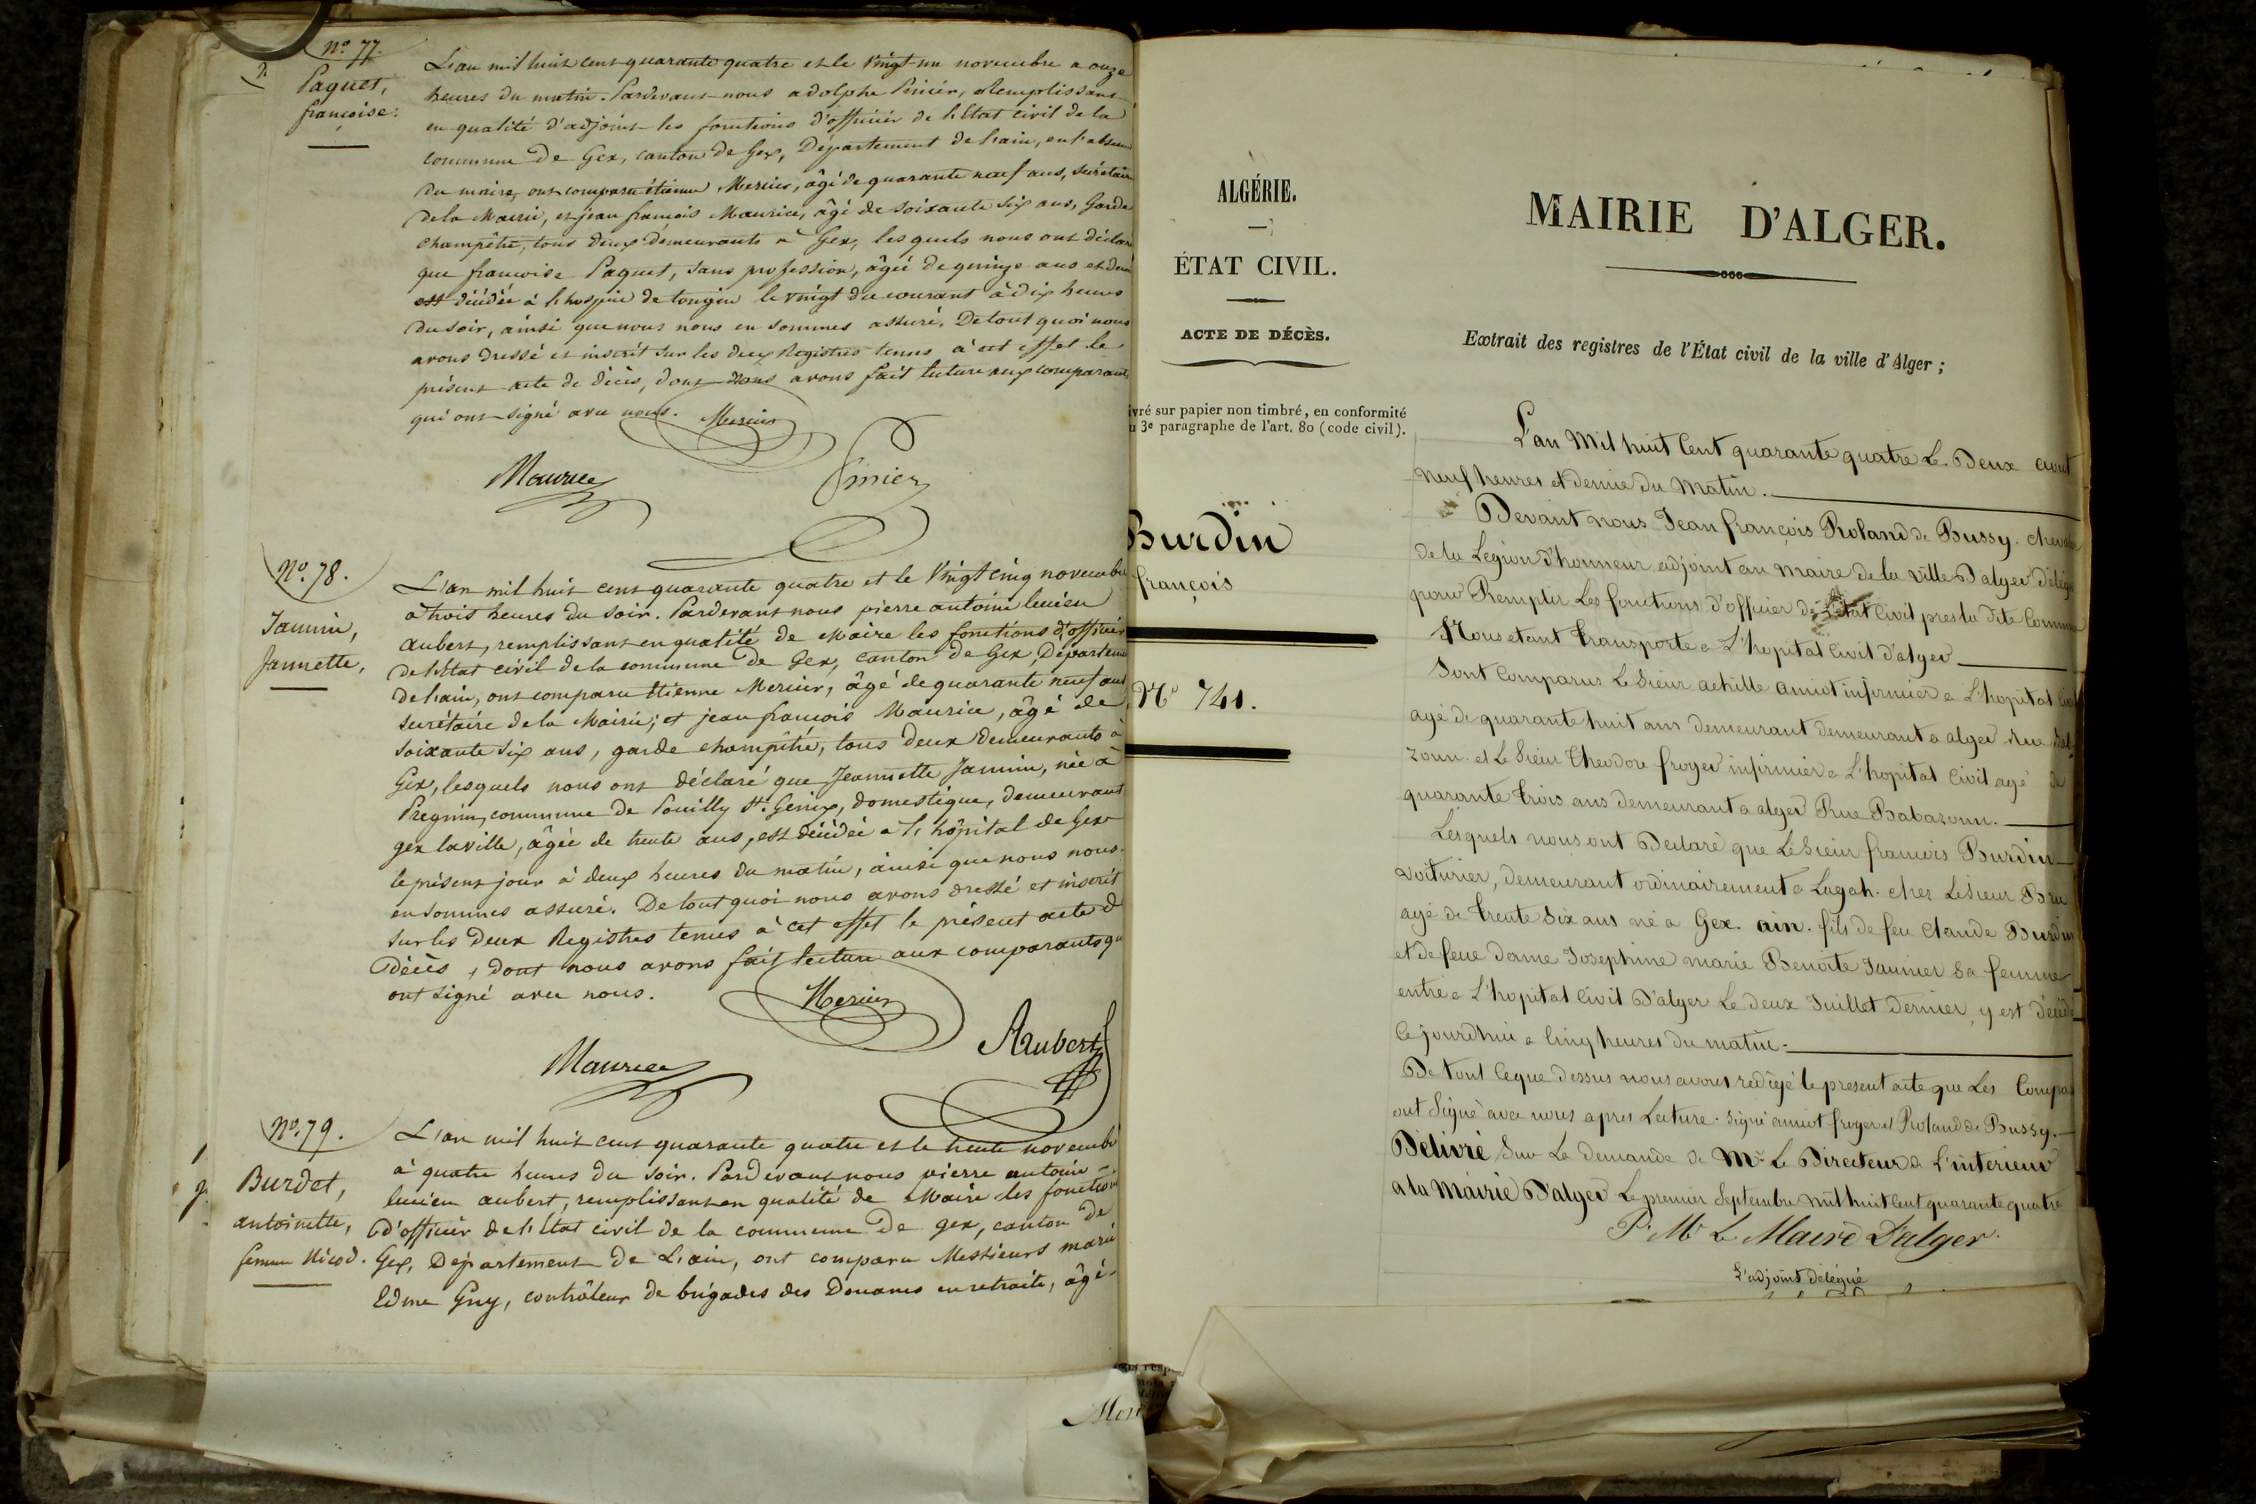 No 77.
Paquet,
françoise.
L'an mil huit cent quarante quatre et le Vingt-un novembre a onze
heures du matin. Pardevant nous adolphe Pinier, Remplissant
en qualité d'adjoint les fonctions d'officier de l'Etat civil de la
commune de Gex, canton de Gex, Département de l'ain, en l'absence
du maire, ont comparu étienne Mercier, âgé de quarante neuf ans, secrétaire
de la Mairie, et jean françois Maurice, âgé de soixante six ans, Garde
champêtre, tous deux demeurants à Gex, lesquels nous ont déclaré
que françoise Paquet, sans profession, âgée de quinze ans et demi
est décédée à l'hospice de tougin le vingt du courant à dix heures
du soir, ainsi que nous nous en sommes assuré. De tout quoi nous
avons dressé et inscrit sur les deux Registres tenus à cet effet le
présent acte de décès, dont nous avons fait lecture aux comparants
qui ont signé avec nous. Mercier
Maurice Pinier
No. 78.
Jannin,
Jannette,
L'an mil huit cent quarante quatre et le Vingt cinq novembre
à trois heures du soir. Pardevant nous pierre antoine lucien
aubert, remplissant en qualité de Maire les fonctions d'officier
de l'Etat civil de la commune de Gex, canton de Gex, Département
de l'ain, ont comparu Etienne Mercier, âgé de quarante neuf ans
secrétaire de la Mairie; et jean françois Maurice, âgé de
soixante six ans, garde champêtre, tous deux demeurants à
Gex, lesquels nous ont déclaré que Jeannette Jannin, née à
Pregnin, commune de Pouilly St. Genix, domestique, demeurant
gex la ville, âgée de trente ans, est décédée à l'hôpital de Gex
le présent jour à deux heures du matin, ainsi que nous nous
en sommes assuré. De tout quoi nous avons dressé et inscrit
sur les deux Registres tenus à cet effet le présent acte de
décès, dont nous avons fait lecture aux comparants qui
ont signé avec nous. Mercier
Maurice Aubert
No. 79.
Burdet,
antoinette,
femme Nicod.
L'an mil huit cent quarante quatre et le trente novembre
à quatre heures du soir. Pardevant nous pierre antoine
lucien aubert, remplissant en qualité de Maire les fonctions
d'officier de l'Etat civil de la commune de gex, canton de
Gex, Département de L'ain, ont comparu Messieurs marie
Edme Guy, contrôleur de brigades des Douanes en retraite, âgé
ALGÉRIE.
ÉTAT CIVIL.
ACTE DE DÉCÈS.
ivré sur papier non timbré, en conformité
u 3e paragraphe de l'art. 80 (code civil).
Burdin
françois
No 741.
MAIRIE D'ALGER.
Extrait des registres de l'État civil de la ville d'Alger ;
L'an Mil huit Cent quarante quatre Le Deux aout
neuf heures et demie du Matin.
Devant nous Jean françois Roland de Bussy. chevalier
de la Legion d'honneur adjoint au maire de la ville D'alger délégué
pour Remplir Les fonctions d'officier de l'Etat Civil pres la dite Commune
Nous etant transporte a L'hopital Civil d'alger
Sont Comparus Le Sieur achille amiot infirmier a L'hopital Civil
agé de quarante huit ans demeurant demeurant a alger Rue Bab
zoun. et Le Sieur Theodore froger infirmier a L'hopital Civil agé de
quarante trois ans demeurant a alger Rue Babazoun.
Lesquels nous ont Declaré que Le Sieur francois Burdin
voiturier, demeurant ordinairement a Lagah. chez Le Sieur Bru
agé de trente Six ans né a Gex. ain. fils de feu Claude Burdin
et de feue dame Josephine marie Benoite Jaunier sa femme
entré a L'hopital Civil D'alger Le deux Juillet dernier, y est décédé
Cejourdhui a Cinq heures du matin.
De tout Ceque dessus nous avons redigé le present acte que Les Compa
ont Signé avec nous apres Lecture. Signé amiot froger et Roland de Bussy.
Délivré Sur La demande de Mr Le Directeur de L'interieur
a la Mairie D'alger Le premier Septembre mil huit Cent quarante quatre
Pr Mr Le Maire D'alger.
L'adjoint délégué